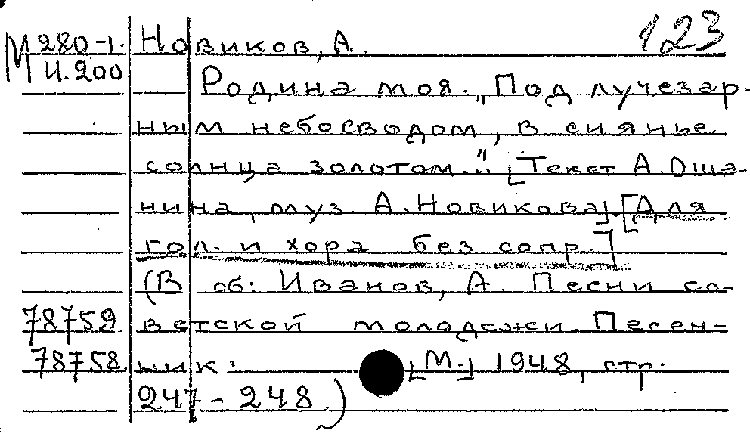 М 280-1. Новиков, А. 123
И.200 Родина моя. „Под лучезар-
ным небосводом, в сиянье
солнца золотом.." [Текст А. Оша-
нина, муз А. Новикова]. [Для
гол. и хора без сопр.]
(В сб: Иванов, А. Песни со-
78759 ветской молодежи. Песен-
78758 ник: [М.] 1948, стр.
247-248)